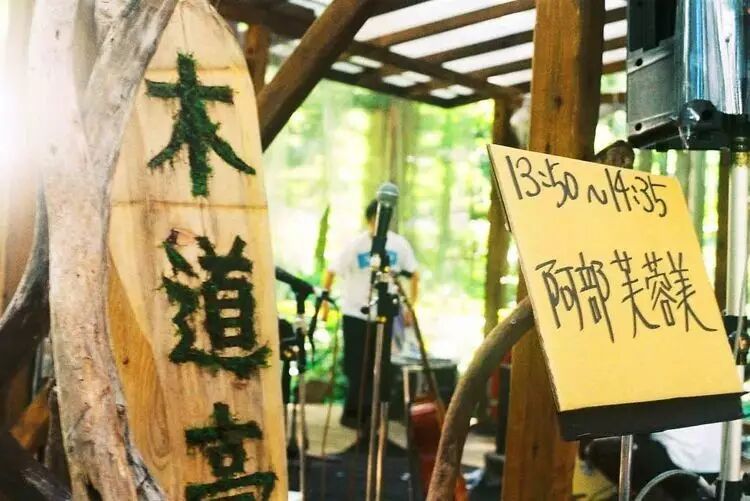 木道亭
13:50~14:35
阿部芙蓉美